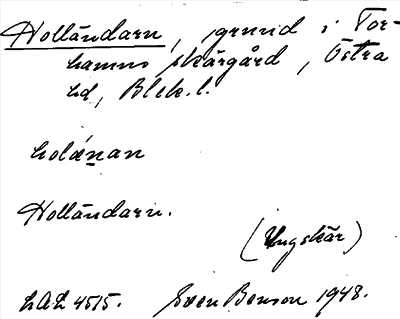 Holländarn, grund i Tor-
hamns skärgård, Östra
hd, Blek. l.
holænan
Holländarn.
(Ungskär)
LAL 4515. Sven Benson 1948.